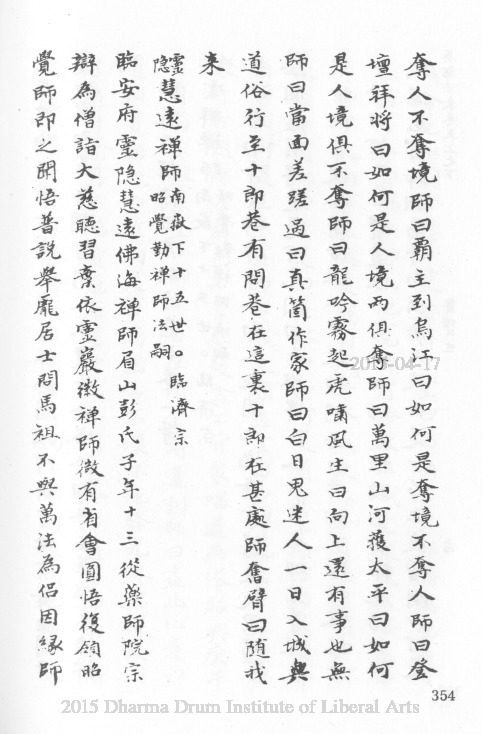 奪人不奪境師曰霸主到烏江曰如何是奪境不奪人師曰登
壇拜將曰如何是人境兩俱奪師曰萬里山河獲太平曰如何
是人境俱不奪師曰龍吟霧起虎嘯風生曰向上還有事也無
師曰當面蹉過曰真箇作家師曰白日鬼迷人一日入城與
道俗行至十郎巷有問巷在這裏十郎在甚處師奮臂曰隨我
来
靈隐慧遠禪師南嶽下十五世。臨濟宗昭覺勤禪師法嗣
臨安府靈隐慧遠佛海禪師眉山彭氏子年十三從藥師院宗
辯為僧詣大慈聽習棄依靈巖徽禪師微有省會圓悟復領昭
覺師即之聞悟普說舉龐居士問馬祖不與萬法為侣因緣師
2015-04-17
354
2015 Dharma Drum Institute of Liberal Arts